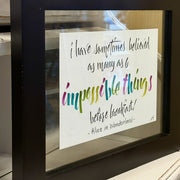 i have sometimes believed
as many as 6
impossible things
before breakfast!
- Alice in Wonderland -